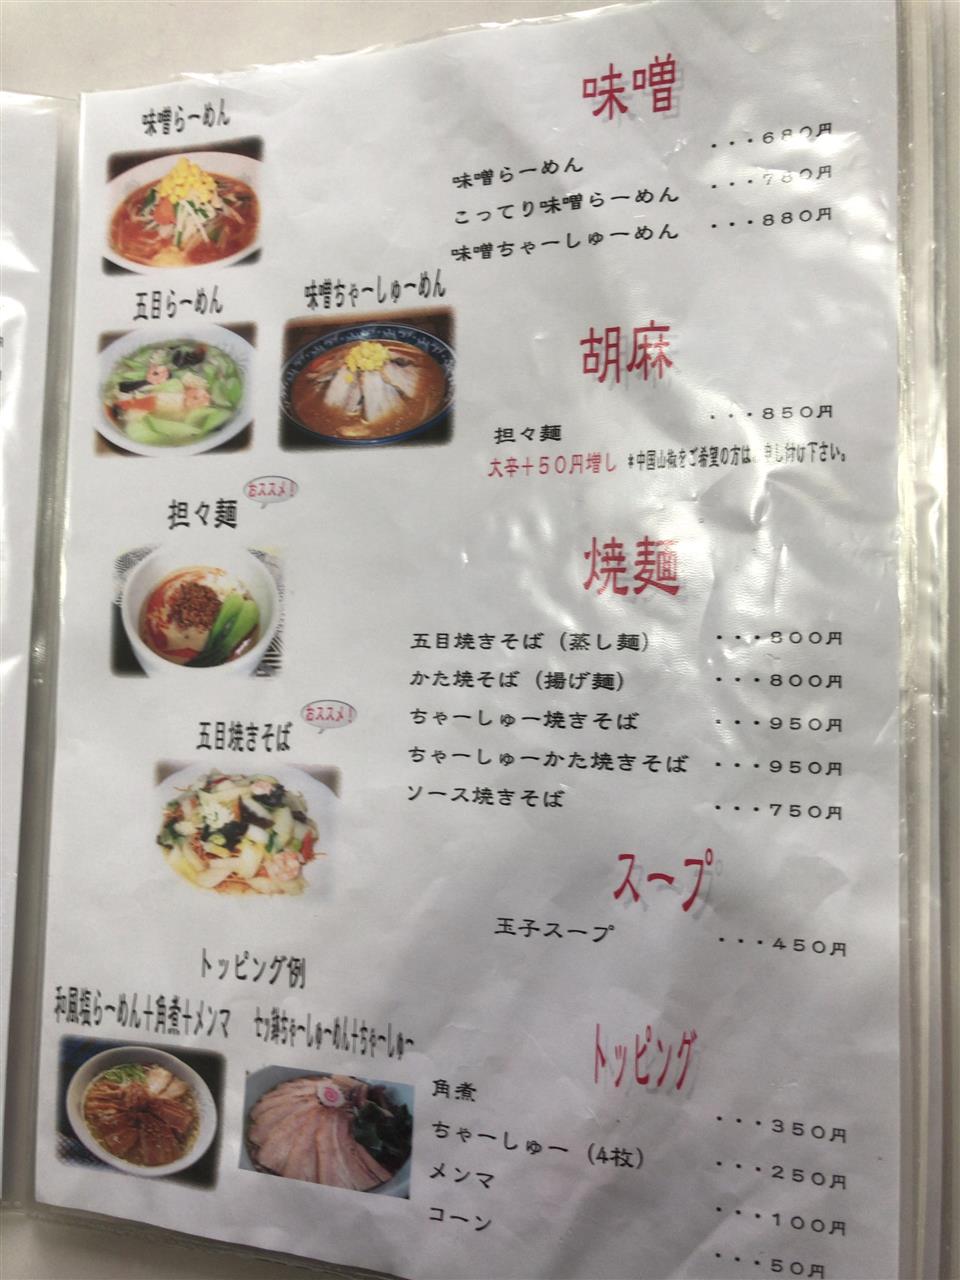 味噌
味噌らーめん
味噌らーめん ・・・680円
こってり味噌らーめん ・・・780円
味噌ちゃーしゅーめん ・・・880円
五目らーめん
味噌ちゃーしゅーめん
胡麻
担々麺 ・・・850円
大辛+50円増し *中国山椒をご希望の方はお申し付け下さい。
おススメ!
担々麺
焼麺
五目焼きそば（蒸し麺） ・・・800円
かた焼そば（揚げ麺） ・・・800円
ちゃーしゅー焼きそば ・・・950円
ちゃーしゅーかた焼きそば ・・・950円
ソース焼きそば ・・・750円
おススメ!
五目焼きそば
スープ
玉子スープ ・・・450円
トッピング例
和風塩らーめん+角煮+メンマ
ちゃーしゅーめん+ちゃーしゅー
トッピング
角煮 ・・・350円
ちゃーしゅー（4枚） ・・・250円
メンマ ・・・100円
コーン ・・・50円